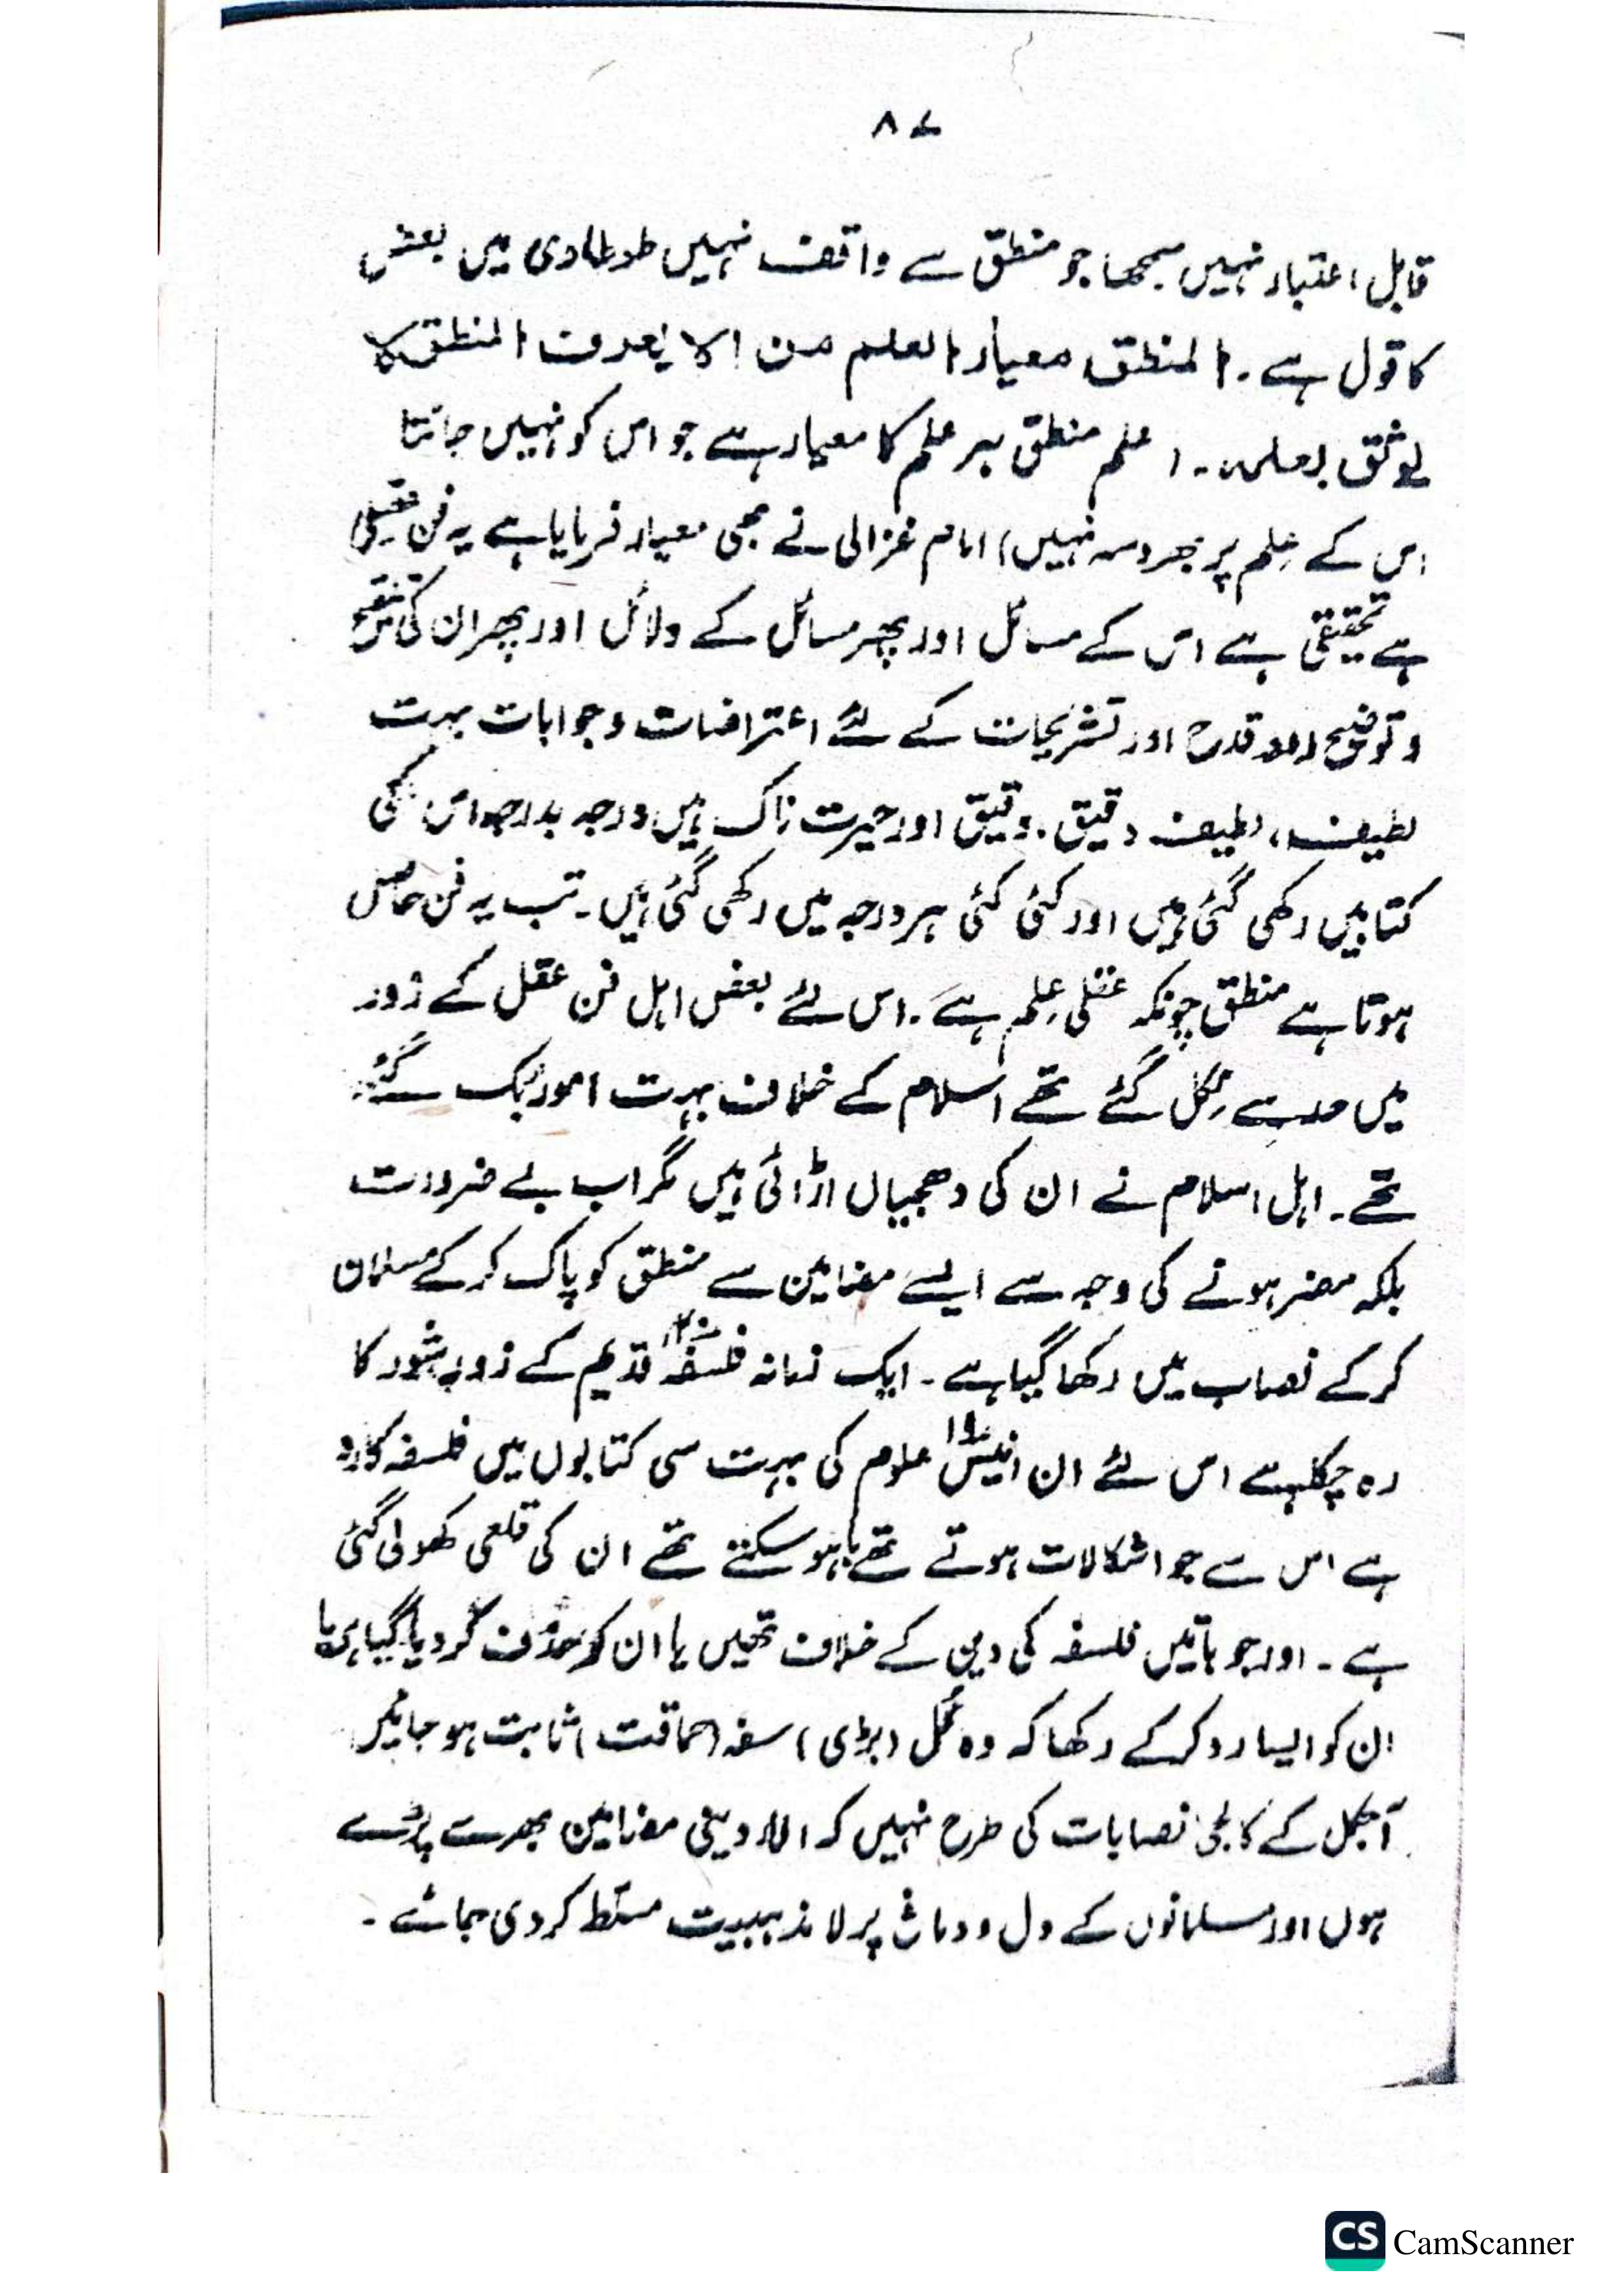 ۸۷
قابل اعتبار نہیں سمجھا جو منطق سے واقف نہیں طحطاوی میں بعض
کا قول ہے۔ المنطق معیار العلم من لا یعرف المنطق لا
یوثق بعلمہ۔ (علم منطق ہر علم کا معیار ہے جو اس کو نہیں جانتا
اس کے عِلم پر بھروسہ نہیں) امام غزالی نے بھی معیار فرمایا ہے یہ فن
ہے تحقیقی ہے اس کے مسائل اور پھر مسائل کے دلائل اور پھر ان کی تنقیح
و توضیح اور اور تشریحات کے لئے اعتراضات و جوابات بہت
لطیف، لطیف دقیق۔ دقیق اور حیرت ناک ہیں درجہ بدرجہ اس کی
کتابیں رکھی گئی ہیں اور کئی کئی ہر درجہ میں رکھی گئی ہیں۔ تب یہ فن حاصل
ہوتا ہے منطق چونکہ عقلی عِلم ہے۔ اس لئے بعض اہل فن عقل کے زور
میں حد سے نکل گئے تھے اسلام کے خلاف بہت امور بک گئے
تھے۔ اہل اسلام نے ان کی دھجیاں اڑائی ہیں مگر اب بے ضرورت
بلکہ مضر ہونے کی وجہ سے ایسے مضامین سے منطق کو پاک کر کے مسلمان
کر کے نصاب میں رکھا گیا ہے۔ ایک زمانہ فلسفہ۲۰ قدیم کے زور شور کا
رہ چکا ہے اس لئے ان انیس۱۹ علوم کی بہت سی کتابوں میں فلسفہ کا رد
ہے اس سے جو اشکالات ہوتے تھے یا ہو سکتے تھے ان کی قلعی کھولی گئی
ہے۔ اور جو باتیں فلسفہ کی دین کے خلاف تھیں یا ان کو حذف کر دیا گیا ہے یا
ان کو ایسا رد کر کے رکھا کہ وہ گُل (بڑی) سفہ (حماقت) ثابت ہو جائیں
آجکل کے کالجی نصابات کی طرح نہیں کہ لادینی مضامین بھرے پڑے
ہوں اور مسلمانوں کے دل و دماغ پر لا مذہبیت مسلط کر دی جائے۔
CS CamScanner